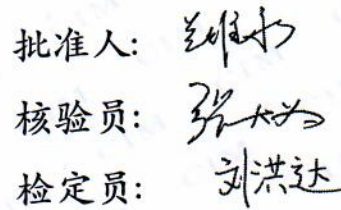 批准人：
核验员：
检定员：刘洪达